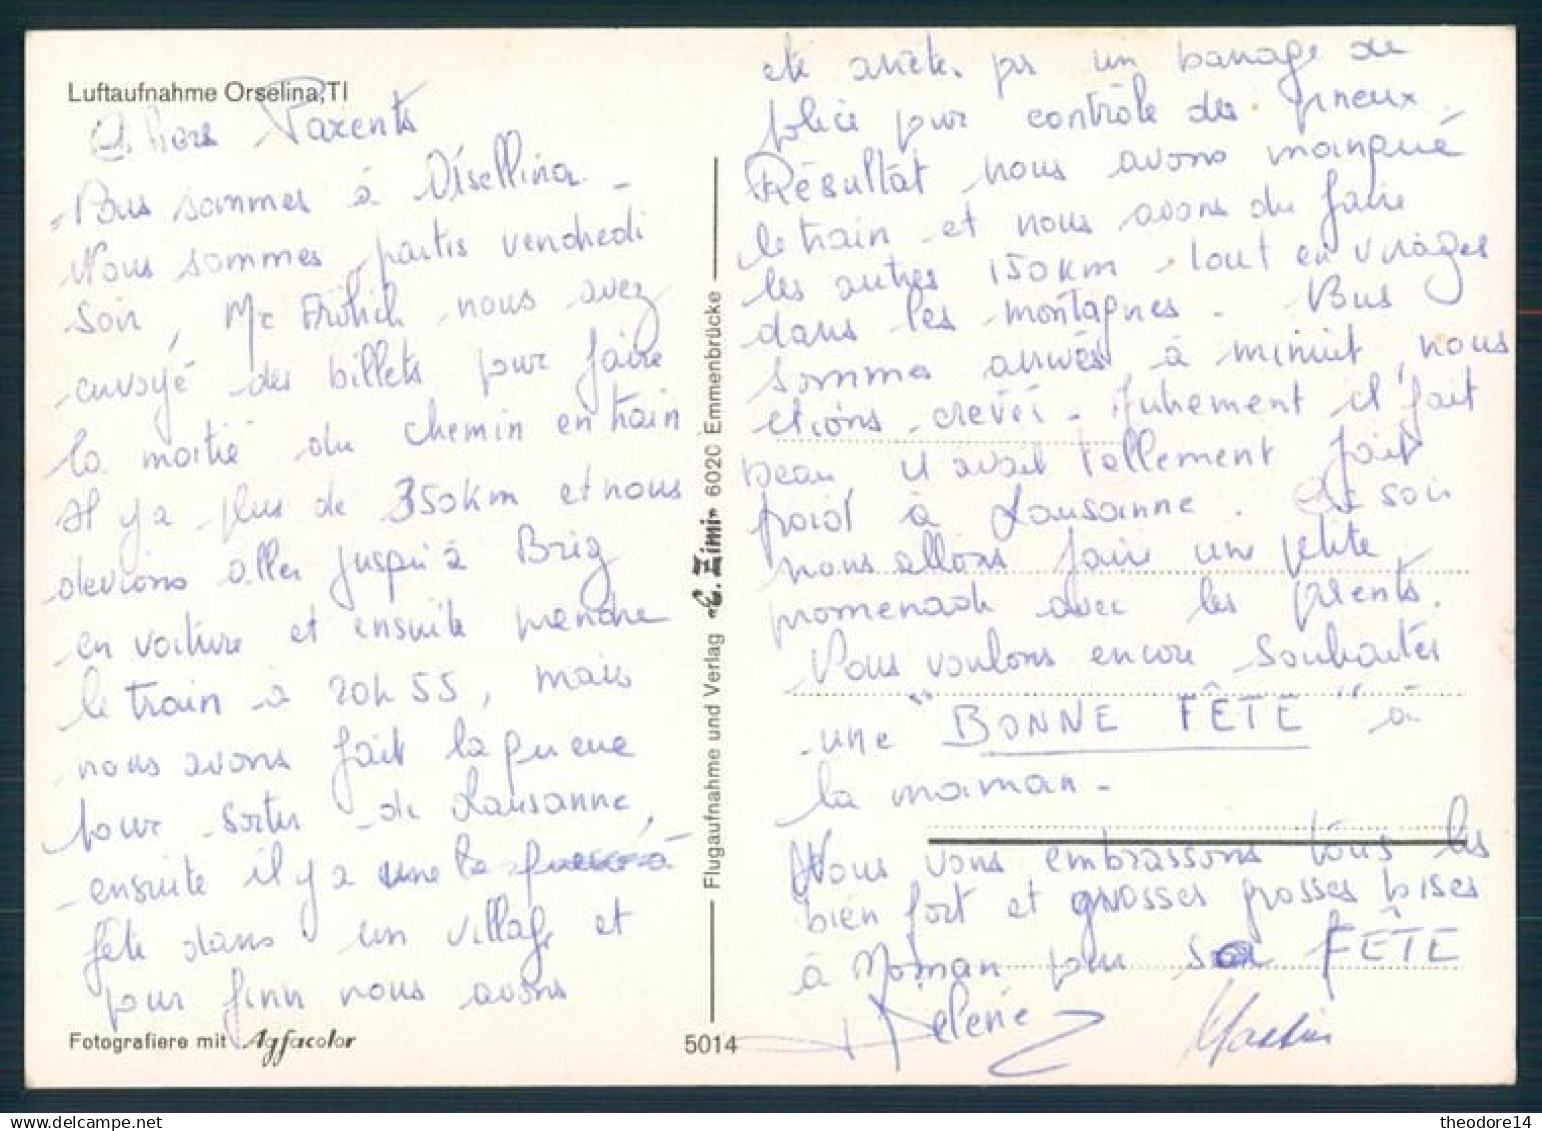 Luftaufnahme Orselina, TI
Chers Parents
Nous sommes à Orsellina.
Nous sommes partis vendredi
soir, Mr Frölich nous avez
envoyé des billets pour faire
la moitié du chemin en train
Il y a plus de 350km et nous
devions aller jusqu'à Brig
en voiture et ensuite prendre
le train à 20h55, mais
nous avons fait la queue
pour sortir de Lausanne,
ensuite il y a une la
fête dans un village et
pour finir nous avons
Fotografiere mit Agfacolor
Flugaufnahme und Verlag "E. Zimi" 6020 Emmenbrücke
5014
été arrêté pr un barrage de
police pour contrôle des pneux.
Résultat nous avons manqué
le train et nous avons du faire
les autres 150km tout en virages
dans les montagnes. Nous
sommes arrivés à minuit, nous
etions crevés. Autrement il fait
beau, il avait tellement fait
froid à Lausanne. Ce soir
nous allons faire une petite
promenade avec les parents.
Nous voulons encore souhaiter
une "BONNE FÊTE" à
la maman.
Nous vous embrassons tous les
bien fort et grosses grosses bises
à Maman pour sa FÊTE
Helene Martin
theodore14